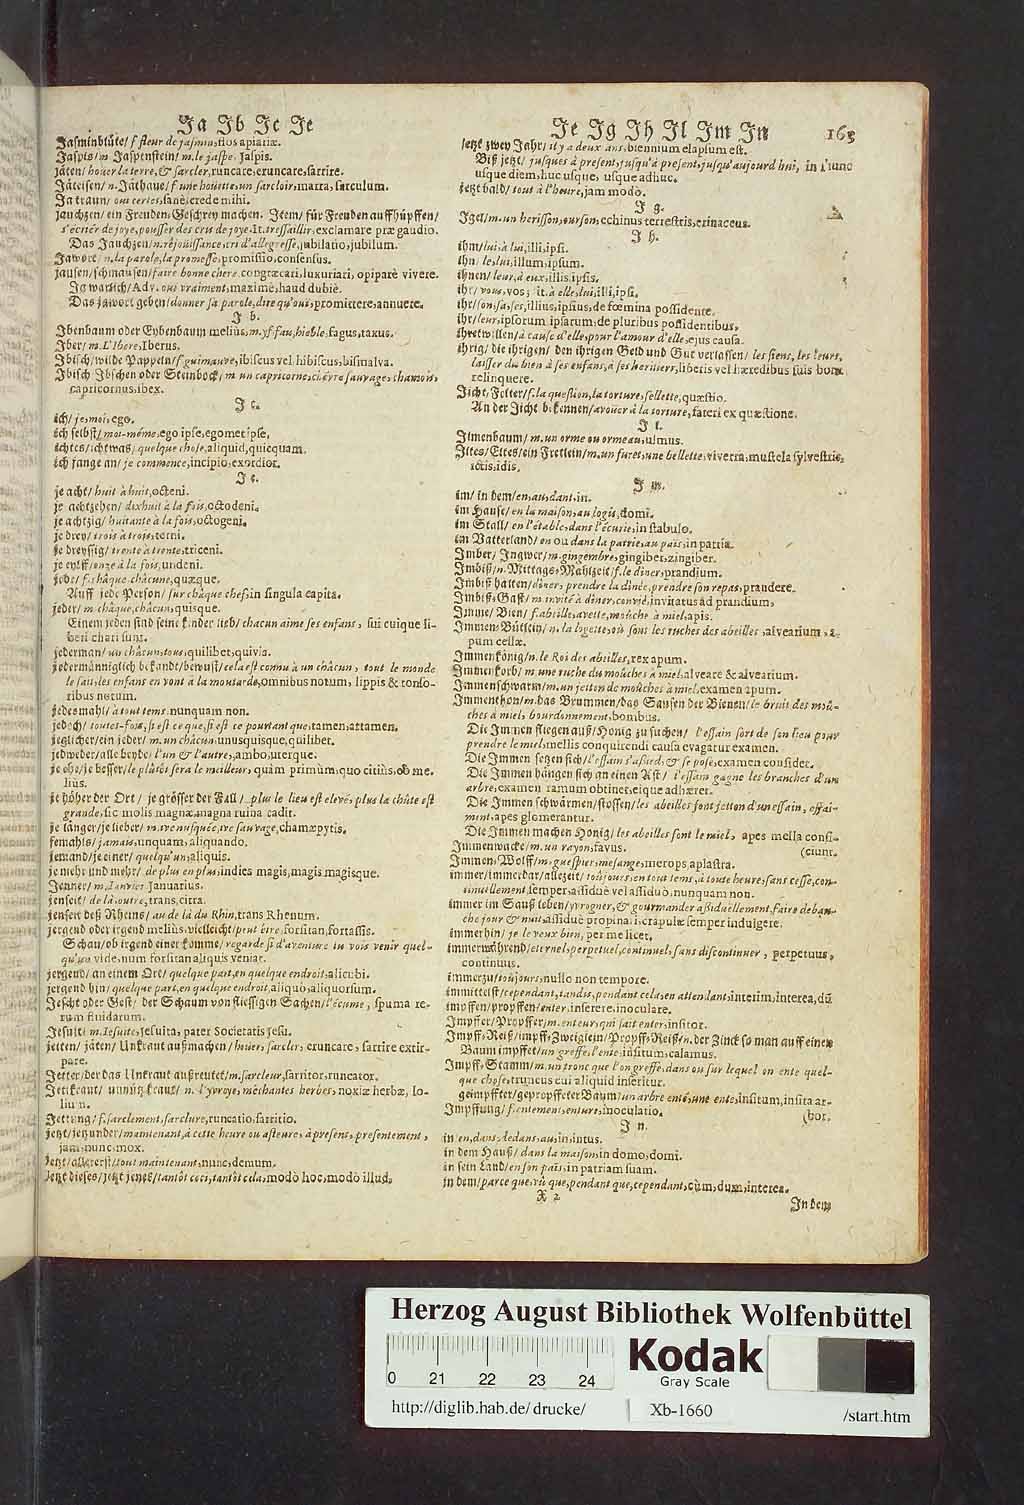 Ja Jb Jc Je
Jasminblüte/ f. fleur de jasmin, flos apiariæ.
Jaspis/ m. Jaspenstein/ m. le jaspe, Jaspis.
jäten/ houer la terre, & sarcler, runcare, eruncare, sarrire.
Jäteisen/ n. Jäthaue/ f. une houëtte, un sarcloir, marra, sarculum.
Ja traun/ oui certes, sanè, crede mihi.
jauchzen/ ein Freuden-Geschrey machen. Item/ für Freuden auffhüpffen/
s'écriér de joye, pousser des cris de joye. It. tressaillir, exclamare præ gaudio.
Das Jauchzen/ n. réjouissance, cri d'allegresse, jubilatio, jubilum.
Jawort/ n. la parole, la promesse, promissio, consensus.
jausen/ schmausen/ faire bonne chere, congræcari, luxuriari, opiparè vivere.
Ja warlich/ Adv. oui vraiment, maximè, haud dubiè.
Das jawort geben/ donner sa parole, dire qu'oui, promittere, annuere.
J b.
Ibenbaum oder Eybenbaum melius, m. yf, fau, hieble, fagus, taxus.
Iber/ m. L'Ibere, Iberus.
Ibisch/ wilde Pappeln/ f. guimauve, ibiscus vel hibiscus, bismalva.
Ibisch Ibschen oder Steinbock/ m. un capricorne, chévre sauvage, chamois,
capricornus, ibex.
J c.
ich/ je, moi, ego.
ich selbst/ moi-méme, ego ipse, egomet ipse.
ichtes/ ichtwas/ quelque chose, aliquid, quicquam.
ich fange an/ je commence, incipio, exordior.
J e.
je acht/ huit à huit, octeni.
je achtzehen/ dixhuit à la fois, octodeni.
je achtzig/ huitante à la fois, octogeni.
je drey/ trois à trois, terni.
je dreyssig/ trente à trente, triceni.
je eylff/ onze à la fois, undeni.
jede/ f. châque châcune, quæque.
Auff jede Person/ sur châque chef, in singula capita.
jeder/ m. châque, châcun, quisque.
Einem jeden sind seine kinder lieb/ chacun aime ses enfans, sui cuique li-
beri chari sunt.
jederman/ un châcun, tous, quilibet, quivis.
jedermänniglich bekandt/ bewust/ cela est connu à un châcun, tout le monde
le sait, les enfans en vont à la moutarde, omnibus notum, lippis & tonso-
ribus notum.
jedesmahl/ à tout tems, nunquam non.
jedoch/ toutes-fois, si est ce que, si est ce pourtant que, tamen, attamen.
jeglicher/ ein jeder/ m. un châcun, unusquisque, quilibet.
jedweder/ alle beyde/ l'un & l'autre, ambo, uterque.
je ehe/ je besser/ le plûtôt sera le meilleur, quàm primùm, quo citiùs, eò me-
lius.
je höher der Ort/ je grösser der Fall/ plus le lieu est elevé, plus la chûte est
grande, sic molis magnæ, magna ruina cadit.
je länger/ je lieber/ m. ive musquée, ive sauvage, chamæpytis.
jemahls/ jamais, unquam, aliquando.
jemand/ je einer/ quelqu'un, aliquis.
je mehr und mehr/ de plus en plus, indies magis, magis magisque.
Jenner/ m. Janvier, Januarius.
jenseit/ de là, outre, trans, citra.
jenseit deß Rheins/ au de là du Rhin, trans Rhenum.
jergend oder irgend melius, vielleicht/ peut étre, forsitan, fortassis.
Schau/ ob irgend einer komme/ regarde si d'avanture tu vois venir quel-
qu'un, vide, num forsitan aliquis veniat.
jergend/ an einem Ort/ quelque part, en quelque endroit, alicubi.
jergend hin/ quelque part, en quelque endroit, aliquò, aliquorsum.
Jescht oder Gest/ der Schaum von fliessigen Sachen/ l'écume, spuma re-
rum fluidarum.
Jesuit/ m. Jesuite, Jesuita, pater Societatis Jesu.
jetten/ jäten/ Unkraut außmachen/ houer, sarcler, eruncare, sarrire extir-
pare.
Jetter/ der das Unkraut außreutet/ m. sarcleur, sarritor, runcator.
Jettkraut/ unnütz kraut/ n. l'yvroye, méchantes herbes, noxiæ herbæ, lo-
lium.
Jettung/ f. sarclement, sarclure, runcatio, sarritio.
jetzt/ jetzunder/ maintenant, à cette heure ou asteure, à present, presentement,
jam, nunc, mox.
Jetzt/ allererst/ tout maintenant, nunc, demum.
Jetzt dieses/ jetzt jenes/ tantôt ceci, tantôt cela, modò hoc, modò illud.
Je Jg Jh Jl Jm Jn 163
jetzt zwey Jahr/ il y a deux ans, biennium elapsum est.
Biß jetzt/ jusques à present, jusqu'à present, jusqu'aujourd'hui, in nunc
usque diem, huc usque, usque adhuc.
jetzt bald/ tout à l'heure, jam modò.
J g.
Igel/ m. un herisson, ourson, echinus terrestris, erinaceus.
J h.
ihm/ lui, à lui, illi, ipsi.
ihn/ le, lui, illum, ipsum.
ihnen/ leur, à eux, illis, ipsis.
ihr/ vous, vos; it. à elle, lui, illi, ipsi.
ihr/ son, sa, ses, illius, ipsius, de fœmina possidente.
ihr/ leur, ipsorum ipsarum, de pluribus possidentibus.
ihretwillen/ à cause d'elle, pour l'amour d'elle, ejus causa.
ihrig/ die ihrigen/ den ihrigen Geld und Gut verlassen/ les siens, les leurs,
laisser du bien à ses enfans, à ses heritiers, liberis vel hæredibus suis bona
relinquere.
Jicht, Folter/ f. la question, la torture, sellette, quæstio.
An der Jicht bekennen/ avoüer à la torture, fateri ex quæstione.
J l.
Ilmenbaum/ m. un orme ou ormeau, ulmus.
Iltes/ Eltes/ ein Fretlein/ m. un furet, une bellette, viverra, mustela sylvestris,
ictis, idis.
J m.
im/ in dem/ en, au, dans, in.
im Hause/ en la maison, au logis, domi.
im Stall/ en l'étable, dans l'écurie, in stabulo.
im Vatterland/ en ou dans la patrie, au païs, in patria.
Imber/ Ingwer/ m. gingembre, gingiber, zingiber.
Imbiß/ n. Mittags-Mahlzeit/ f. le dîner, prandium.
Imbiß halten/ dîner, prendre la dînée, prendre son repas, prandere.
Imbiß-Gast/ m. invité à dîner, convié, invitatus ad prandium.
Imme/ Bien/ f. abeille, avette, moûche à miel, apis.
Immen-Bütlein/ n. la logette, où sont les ruches des abeilles, alvearium, a-
pum cellæ.
Immenkönig/ n. le Roi des abeilles, rex apum.
Immenkorb/ m. une ruche du moûches à miel, alveare & alvearium.
Immenschwarm/ m. un jetton de moûches à miel, examen apum.
Immenthon/ m. das Brummen/ das Sausen der Bienen/ le bruit des moû-
ches à miel, bourdonnement, bombus.
Die Immen fliegen auß/ Honig zu suchen/ l'essain sort de son lieu pour
prendre le miel, mellis conquirendi causa evagatur examen.
Die Immen setzen sich/ l'essaim s'assied, & se pose, examen considet.
Die Immen hängen sich an einen Ast/ l'essaim gagne les branches d'un
arbre, examen ramum obtinet, eique adhæret.
Die Immen schwärmen/ stossen/ les abeilles font jetton d'un essain, essai-
ment, apes glomerantur.
Die Immen machen Honig/ les abeilles font le miel, apes mella confi-
Immenwacke/ m. un rayon, favus. (ciunt.
Immen-Wolff/ m. guespier, mesange, merops, apiastra.
immer/ immerdar/ allezeit/ toûjours, en tout tems, à toute heure, sans cesse, con-
tinuellement, semper, assiduè vel assiduò, nunquam non.
immer im Sauß leben/ yvrogner, & gourmander aßiduëllement, faire debau-
che jour & nuit, assiduè propinari, crapulæ semper indulgere.
immerhin/ je le veux bien, per me licet.
immerwährend/ eternel, perpetuel, continuel, sans discontinuer, perpetuus,
continuus.
immerzu/ toûjours, nullo non tempore.
immittelst/ cependant, tandis, pendant cela, en attendant, interim, interea, dũ
impffen/ propffen/ enter, inserere, inoculare.
Impffer/ Propffer/ m. enteur, qui sait enter, insitor.
Impff-Reiß/ impff-Zweiglein/ Propff-Reiß/ n. der Zinck so man auff einen
Baum impffet/ un greffe, l'ente, insitum, calamus.
Impff-Stamm/ m. un tronc que l'on greffe, dans ou sur lequel on ente quel-
que chose, truncus cui aliquid inseritur.
geimpffter/ gepropffeter Baum/ un arbre enté, une ente, insitum, insita ar-
Impffung/ f. entement, enture, inoculatio. (bor.
J n.
in en, dans, dedans, au, in, intus.
in dem Hauß/ dans la maison, in domo, domi.
in sein Land/ en son païs, in patriam suam.
in dem/ parce que, vû que, pendant que, cependant, cùm, dum, interea.
X 2
In dem
Herzog August Bibliothek Wolfenbüttel
0 21 22 23 24
Kodak
Gray Scale
http://diglib.hab.de/drucke/
Xb-1660
/start.htm